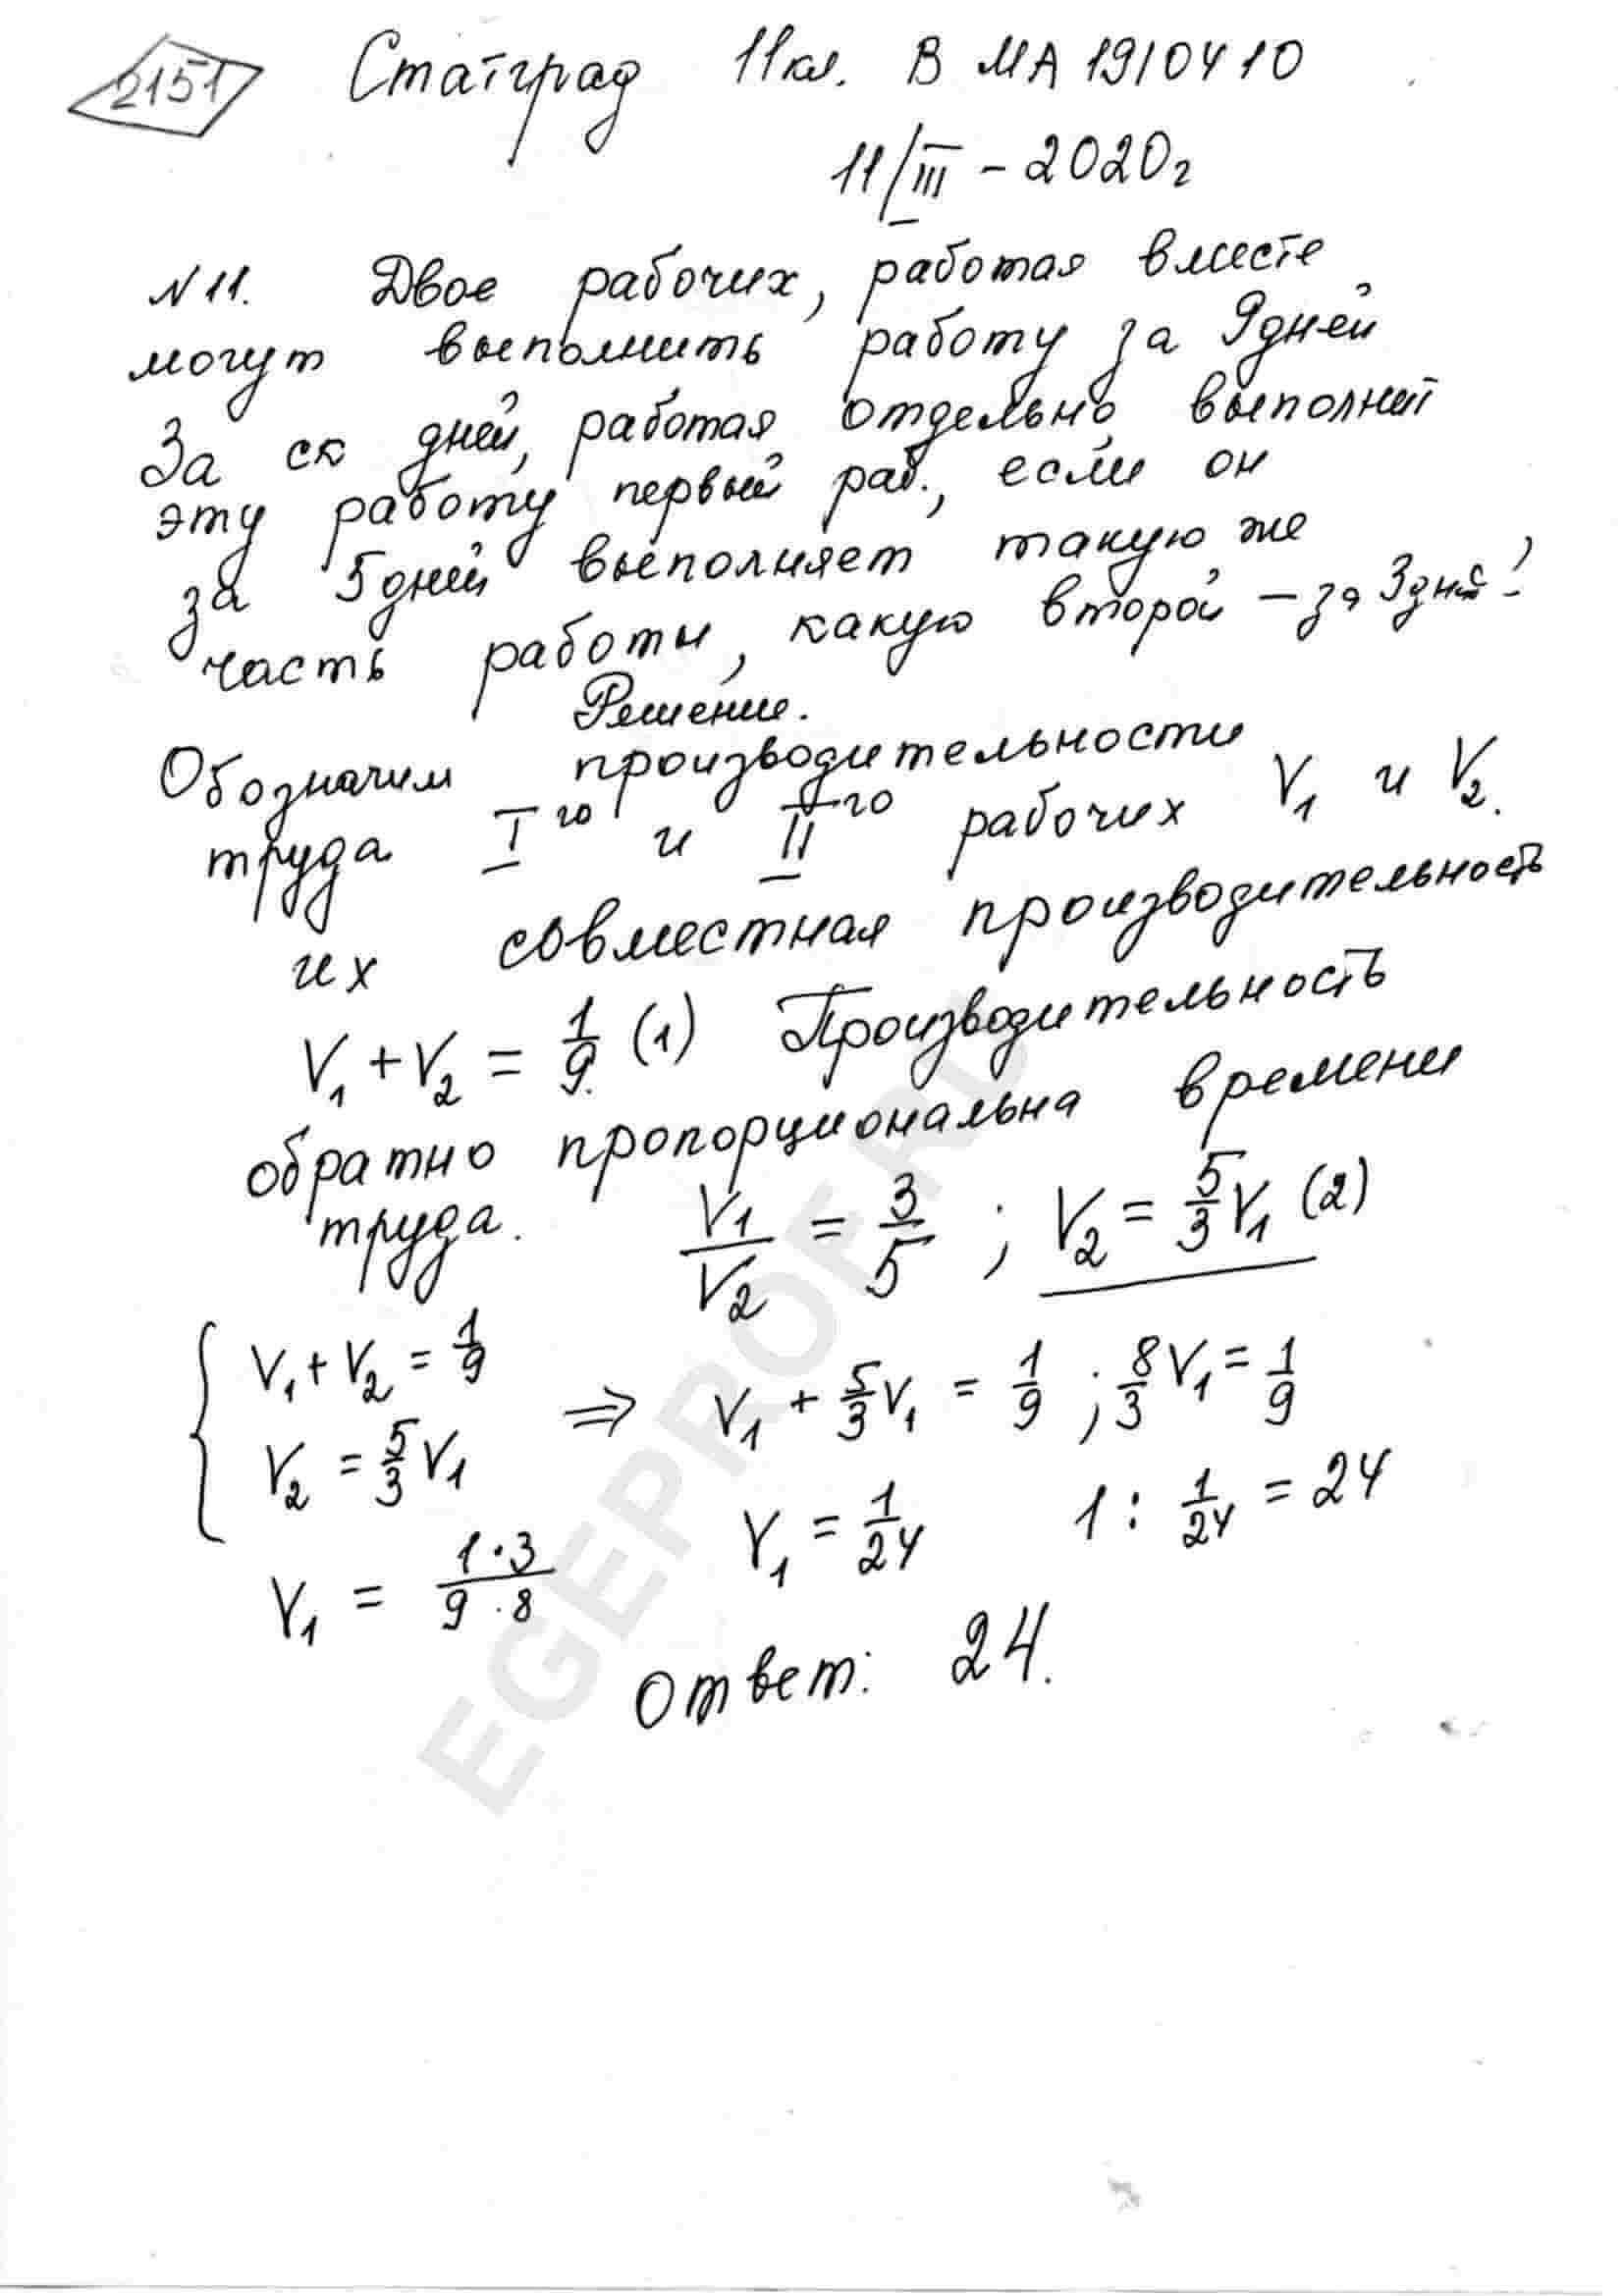 2151 Статград 11кл. В МА 1910410
11/III - 2020г
N 11. Двое рабочих, работая вместе
могут выполнить работу за 9 дней
За ск дней, работая отдельно, выполнит
эту работу первый раб., если он
за 5 дней выполняет такую же
часть работы, какую второй - за 3 дня?
Решение.
Обозначим производительности
труда I го и II го рабочих V1 и V2.
их совместная производительность
V1 + V2 = 1/9 (1) Производительность
обратно пропорциональна времени
труда. V1/V2 = 3/5 ; V2 = 5/3 V1 (2)
V1 + V2 = 1/9
V2 = 5/3 V1
⇒ V1 + 5/3 V1 = 1/9 ; 8/3 V1 = 1/9
V1 = (1·3)/(9·8) V1 = 1/24 1 : 1/24 = 24
Ответ: 24.
EGEPROF.RU